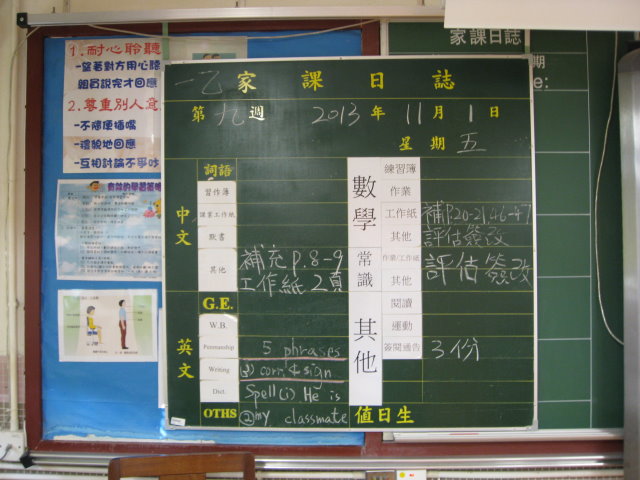 1.耐心聆聽
-望著對方用心聽
親員説完才回應
2.尊重別人意
-不隨便插嘴
-禮貌地回應
-互相討論不爭吵
家課日誌
期
e:
一乙家課日誌
第九週 2013年11月1日
星期五
中文
詞語
習作簿
課室工作紙
默書
其他 補充P.8-9
工作紙2頁
英文
G.E.
W.B.
Penmanship 5 phrases
Writing corr & sign
Dict. Spell(1) He is
OTHS ②my classmate
數學
練習簿
作業
工作紙 補P20-21,46-47
其他 評估簽改
常識
作業/工作紙 評估簽改
其他
其他
閱讀
運動
簽閱通告 3份
值日生